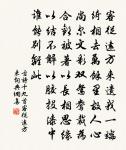 客從遠方來遺我一端
綺相去萬餘里故人心
尚爾文彩雙鴛鴦裁為
合歡被著以長相思緣
以結不解以膠投漆中
誰能別離此
古詩十九首客從遠方
來